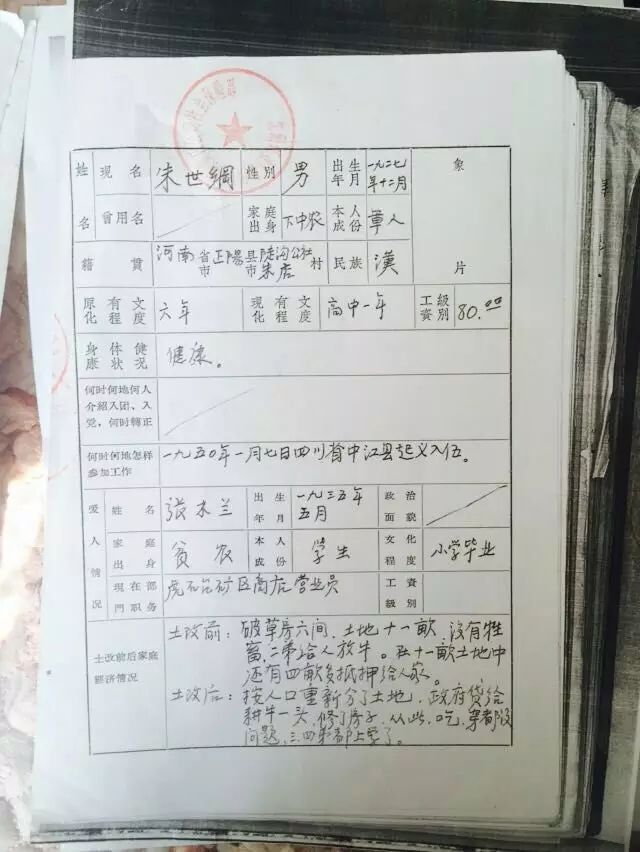 姓名 現名 朱世綱 性別 男 出生年月 一九二七年十二月 象片
曾用名 家庭出身 下中农 本人成份 軍人
籍貫 河南省市正陽县市陡沟公社朱店村 民族 漢
原有文化程度 六年 現有文化程度 高中一年 工資級別 80.00
身体健康状况 健康。
何时何地何人
介紹入团、入
党，何时轉正
何时何地怎样参加工作 一九五〇年一月七日四川省中江县起义入伍。
爱人情况 姓名 張木兰 出生年月 一九三五年五月 政治面貌
家庭出身 貧农 本人成份 学生 文化程度 小学毕业
現在部門职务 矿区商店营业员 工資級別
土改前后家庭經济情况
土改前：破草房六间，土地十一畝，没有牲
畜，二弟给人放牛。在十一畝土地中
还有四畝多抵押给人家。
土改后：按人口重新分了土地，政府贷给
耕牛一头，修了房子，从此，吃，穿都没
问题，三、四弟都上学了。